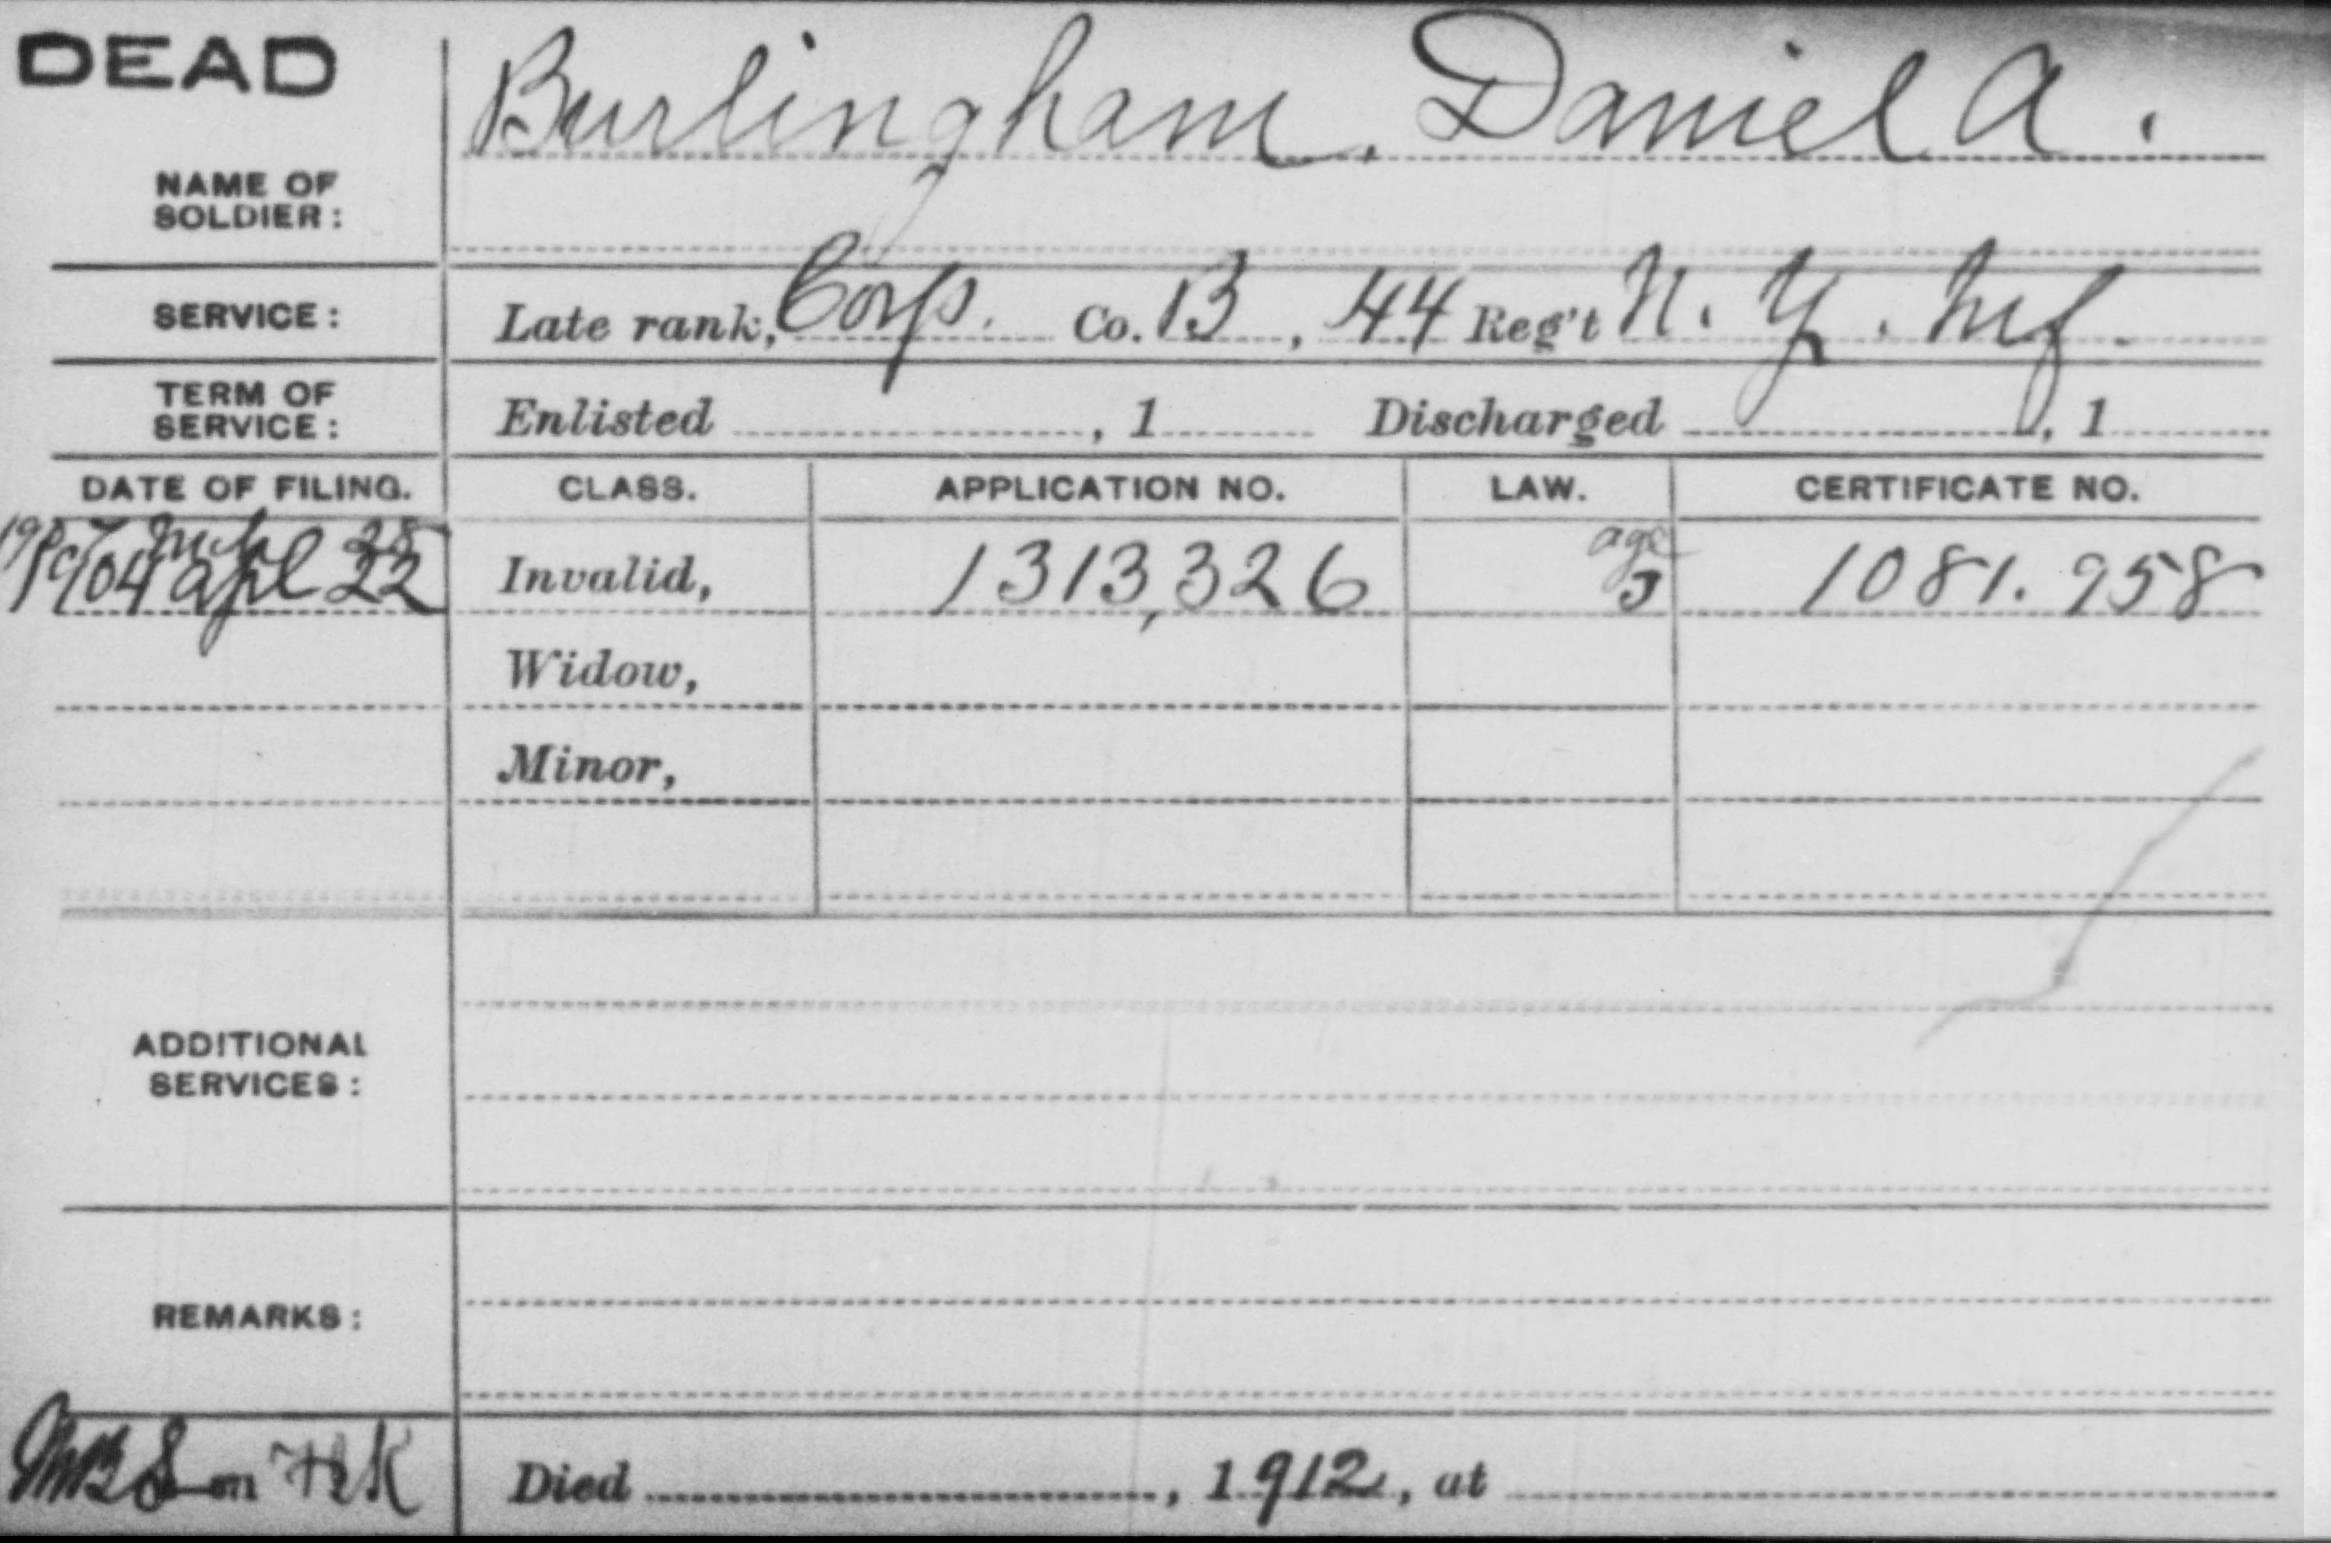 DEAD
Burlingham, Daniel A.
NAME OF
SOLDIER:
SERVICE: Late rank, Corp. Co. B, 44 Reg't N. Y. Inf.
TERM OF
SERVICE: Enlisted , 1 Discharged , 1
DATE OF FILING. CLASS. APPLICATION NO. LAW. CERTIFICATE NO.
28 age
1904 Apl 22 Invalid, 1313,326 1081.958
Widow,
Minor,
ADDITIONAL
SERVICES:
REMARKS:
Died , 1912, at